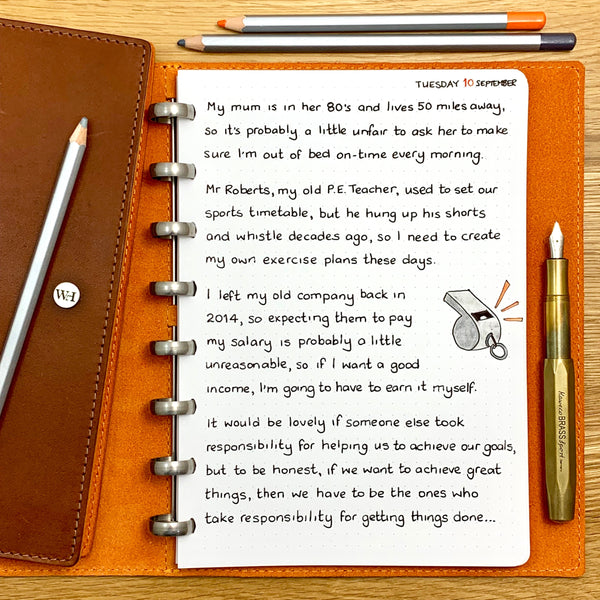 TUESDAY 10 SEPTEMBER
My mum is in her 80's and lives 50 miles away,
so it's probably a little unfair to ask her to make
sure I'm out of bed on-time every morning.
Mr Roberts, my old P.E. Teacher, used to set our
sports timetable, but he hung up his shorts
and whistle decades ago, so I need to create
my own exercise plans these days.
I left my old company back in
2014, so expecting them to pay
my salary is probably a little
unreasonable, so if I want a good
income, I'm going to have to earn it myself.
It would be lovely if someone else took
responsibility for helping us to achieve our goals,
but to be honest, if we want to achieve great
things, then we have to be the ones who
take responsibility for getting things done...
WH
Kaweco BRASS Sport